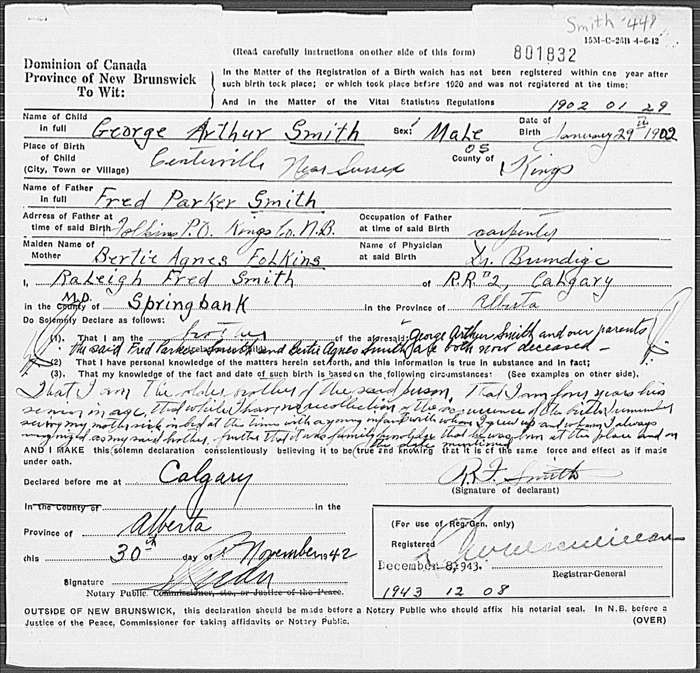 Smith 448
15M-C-25B-4-6-12
(Read carefully instructions on other side of this form)
801832
Dominion of Canada
Province of New Brunswick
To Wit:
In the Matter of the Registration of a Birth which has not been registered within one year after
such birth took place; or which took place before 1920 and was not registered at the time:
And in the Matter of the Vital Statistics Regulations
1902 01 29
Name of Child in full George Arthur Smith Sex: Male Date of Birth January 29th 1902
Place of Birth of Child (City, Town or Village) Centerville Near Sussex County of Kings
05
Name of Father in full Fred Parker Smith
Address of Father at time of said Birth Folkins P.O. Kings Co. N.B. Occupation of Father at time of said Birth carpenter
Maiden Name of Mother Bertie Agnes Folkins Name of Physician at said Birth Dr. Brundige
I, Raleigh Fred Smith of R.R. #2, Calgary
in the County of M.D. Springbank in the Province of Alberta
Do Solemnly Declare as follows:
(1). That I am the brother of the aforesaid: George Arthur Smith and our parents
the said Fred Parker Smith and Bertie Agnes Smith are both now deceased -
(2) That I have personal knowledge of the matters herein set forth, and this information is true in substance and in fact;
(3). That my knowledge of the fact and date of such birth is based on the following circumstances! (See examples on other side),
That I am the older brother of the said person, That I am four years his
senior in age, that while I have no recollection of the occurrence of the birth I remember
seeing my mother sick in bed at the time with a young infant with whom I grew up and whom I always
recognized as my said brother, further that it was family knowledge that he was born at the place and on
the date mentioned
AND I MAKE this solemn declaration conscientiously believing it to be true and knowing that it is of the same force and effect as if made
under oath.
Declared before me at Calgary R.F. Smith
(Signature of declarant)
In the County of in the
Province of Alberta
this 30th day of November 1942
Signature
Notary Public. Commissioner, etc., or Justice of the Peace.
(For use of Reg. Gen. only)
Registered
December 8, 1943.
Registrar-General
1943 12 08
OUTSIDE OF NEW BRUNSWICK, this declaration should be made before a Notary Public who should affix his notarial seal. In N.B. before a
Justice of the Peace, Commissioner for taking affidavits or Notary Public. (OVER)